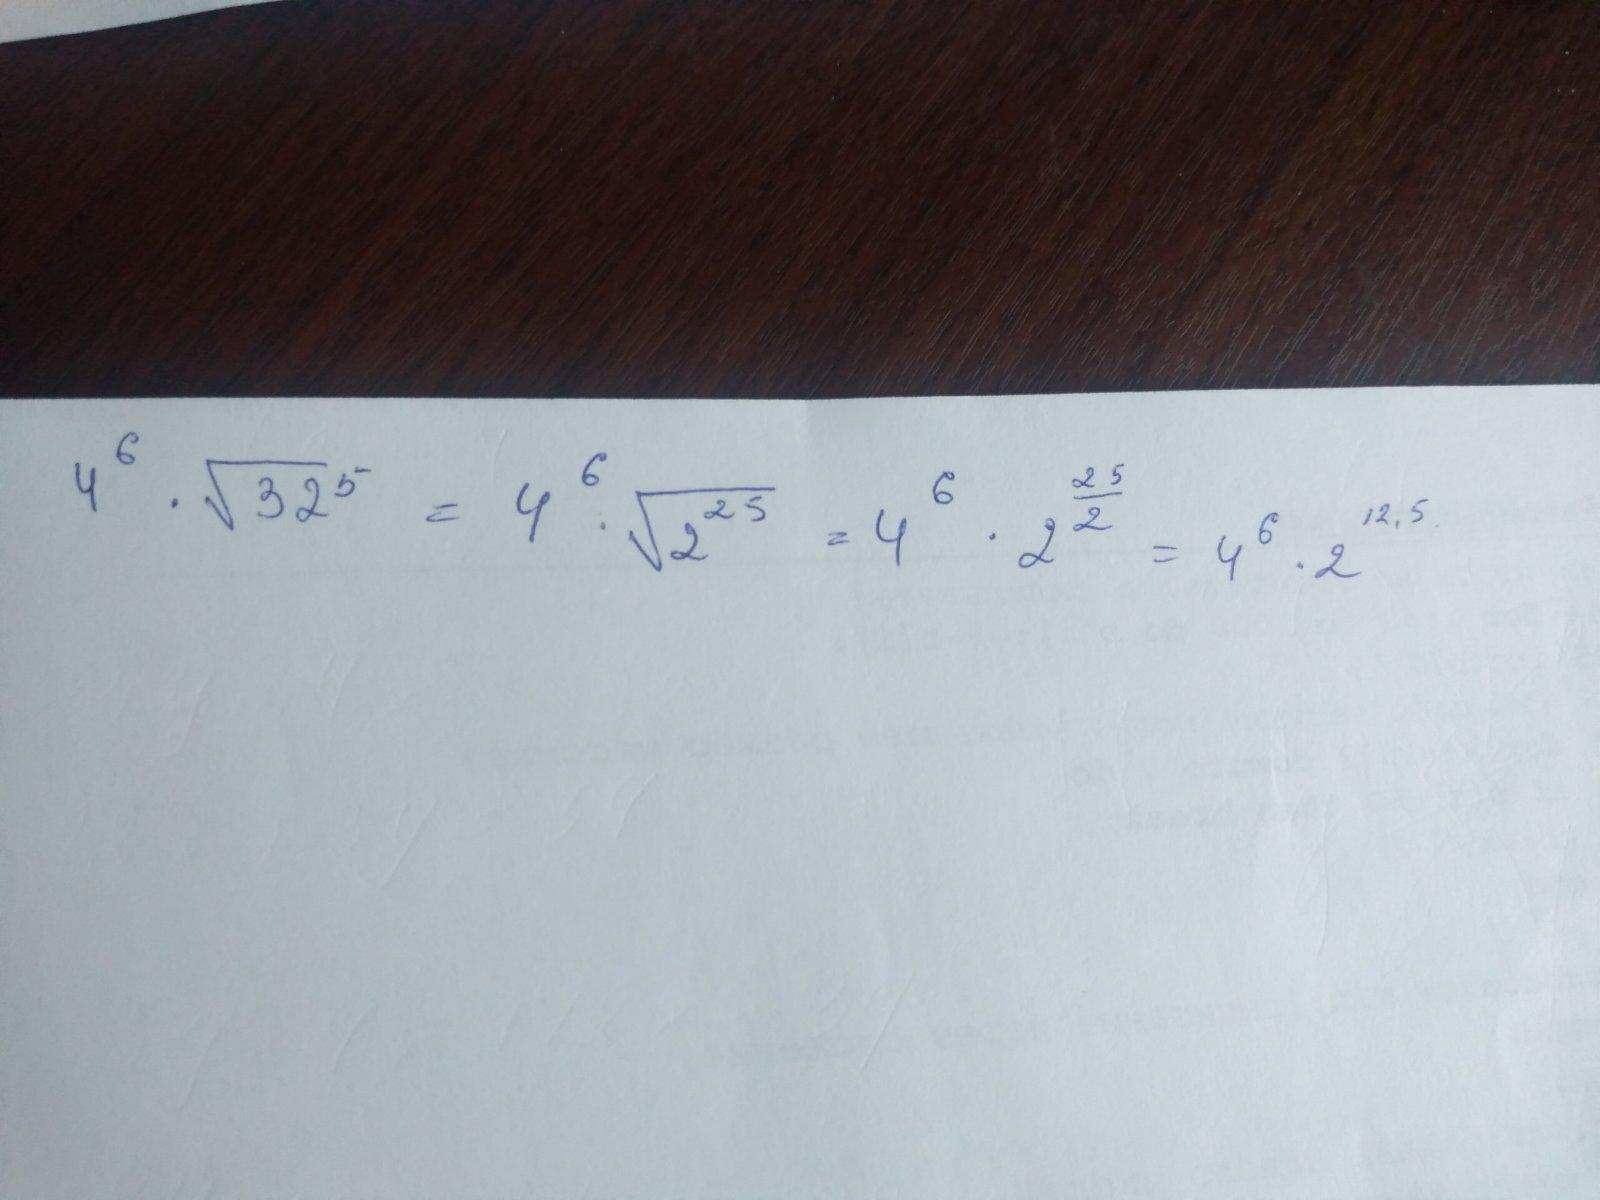 4⁶ · √32⁵ = 4⁶ · √2²⁵ = 4⁶ · 2^(25/2) = 4⁶ · 2^12,5